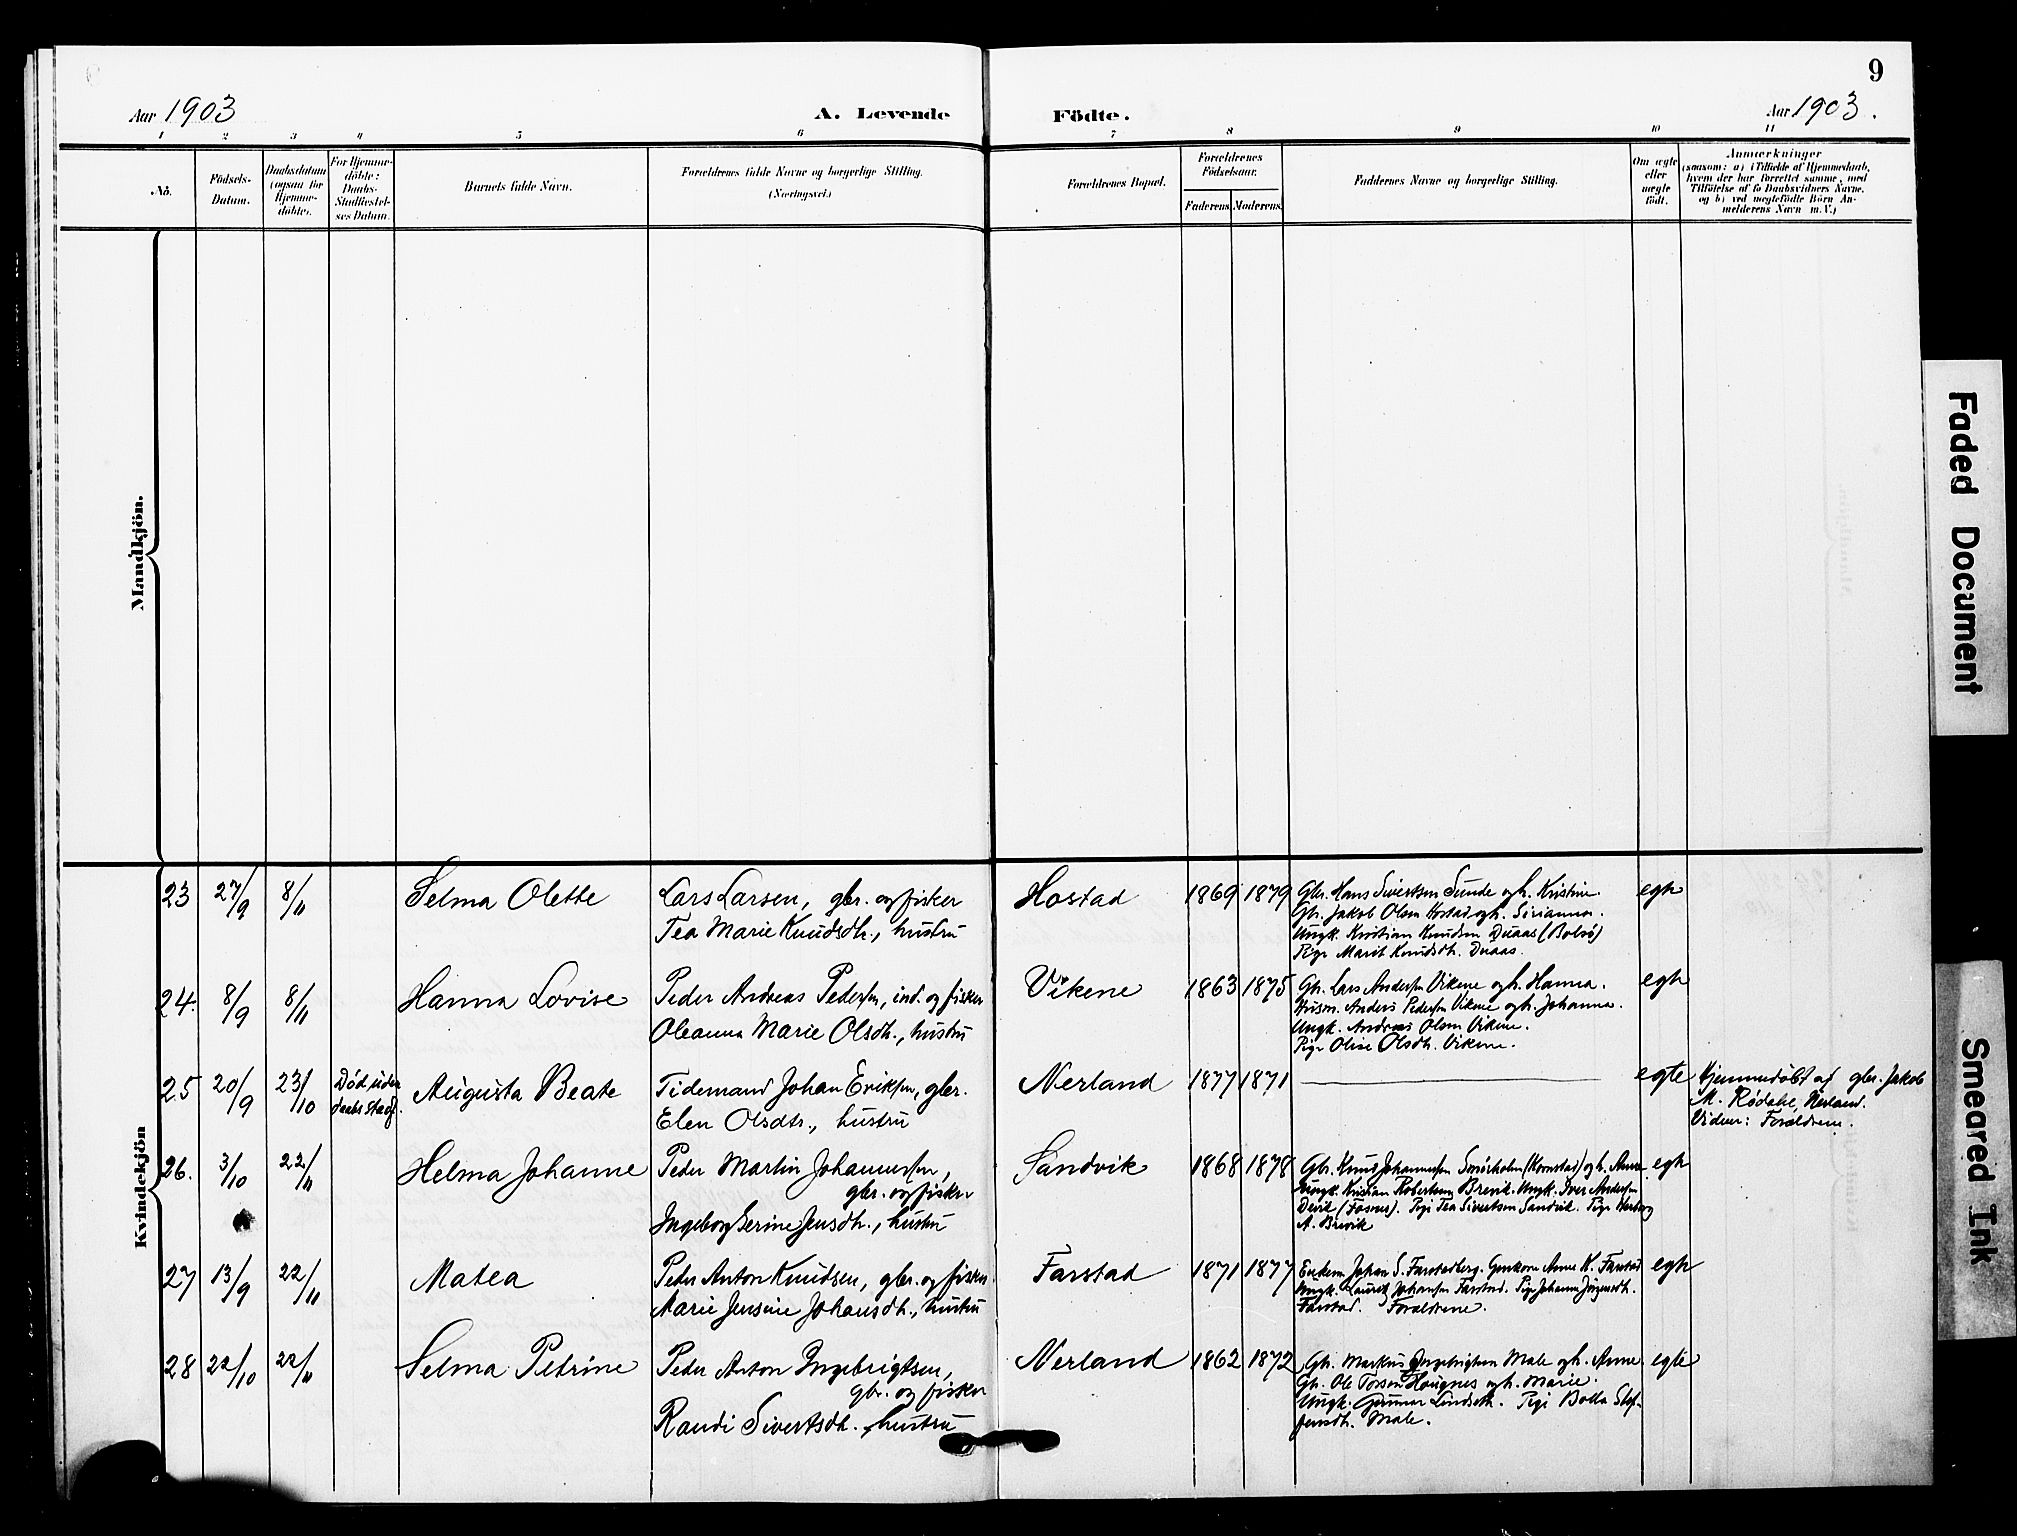 9
Aar 1903
A. Levende Födte.
Aar 1903.
1 2 3 4 5 6 7 8 9 10 11
No.
Födsels-
Datum.
Daabsdatum
(ogsaa for
Hjemme-
döbte).
For Hjemme-
döbte:
Daabs-
Stadfæstel-
ses Datum.
Barnets fulde Navn.
Forældrenes fulde Navne og borgerlige Stilling.
(Næringsvei.)
Forældrenes Bopæl.
Forældrenes
Födselsaar.
Faderens Moderens.
Faddernes Navne og borgerlige Stilling.
Om ægte
eller
uægte
födt.
Anmærkninger
(saasom: a) i Tilfælde af Hjemmedaab,
hvem der har forrettet samme, med
Tilföielse af to Daabsvidners Navne.
og b) ved uægtefödte Börn An-
melderens Navn m. V.)
Mandkjön.
Kvindekjön
23 27/9 8/11 Selma Olette Lars Larsen, gbr. og fisker Hostad 1869 1879 Gbr. Hans Sivertsen Sunde og h. Kristine. egte
Tea Marie Knudsdtr., hustru Gbr. Jakob Olsen Hostad og h. Sirianna.
Ungk. Kristian Knudsen Duaas (Bolsö)
Pige Marit Knudsdtr. Duaas.
24. 8/9 8/11 Hanna Lovise Peder Andreas Pedersen, ind. og fisker Vikene 1863 1875 Gbr. Lars Andersen Vikene og h. Hanna. egte
Oleanna Marie Olsdtr., hustru Husm. Anders Pedersen Vikene og h. Johanna.
Ungk. Andreas Olsen Vikene.
Pige Olise Olsdtr. Vikene.
25 20/9 23/10 Död uden Augusta Beate Tidemand Johan Eriksen, gbr. Nerland 1877 1871 egte Hjemmedöbt af gbr. Jakob
daabs stadf. Elen Olsdtr., hustru M. Rödahl, Nerland.
Vidner: Forældrene.
26. 3/10 22/11 Helma Johanne Peder Martin Johannessen, Sandvik 1868 1878 Gbr. Knud Johannessen Smörholm (Kornstad) og h. Anne. egte
gbr. og fisker Ungk. Kristian Robertsen Brevik. Ungk. Iver Andersen
Ingeborg Serine Jensdtr., hustru (Fosnes). Pige Tea Sivertsen Sandvik. Pige
A. Brevik
27 13/9 22/11 Matea Peder Anton Knudsen, gbr. og fisker. Farstad 1871 1877 Enkem. Johan S. Farstadberg. Anne K. Farstad egte
Marie Jensine Johansdtr., hustru Ungk. Laurits Johansen Farstad. Pige Johanna Jörgensdtr.
Farstad. Forældrene.
28 22/10 22/11 Selma Petrine Peder Anton Ingebrigtsen, Nerland 1862 1872 Gbr. Markus Ingebrigtsen Male og h. Anne. egte
gbr. og fisker Gbr. Ole Torsen Hougnes og h. Marie.
Randi Sivertsdtr. hustru Ungk. Gunnar Lindseth. Pige Bolla Stef-
fensdtr. Male.
Faded Document
Smeared Ink